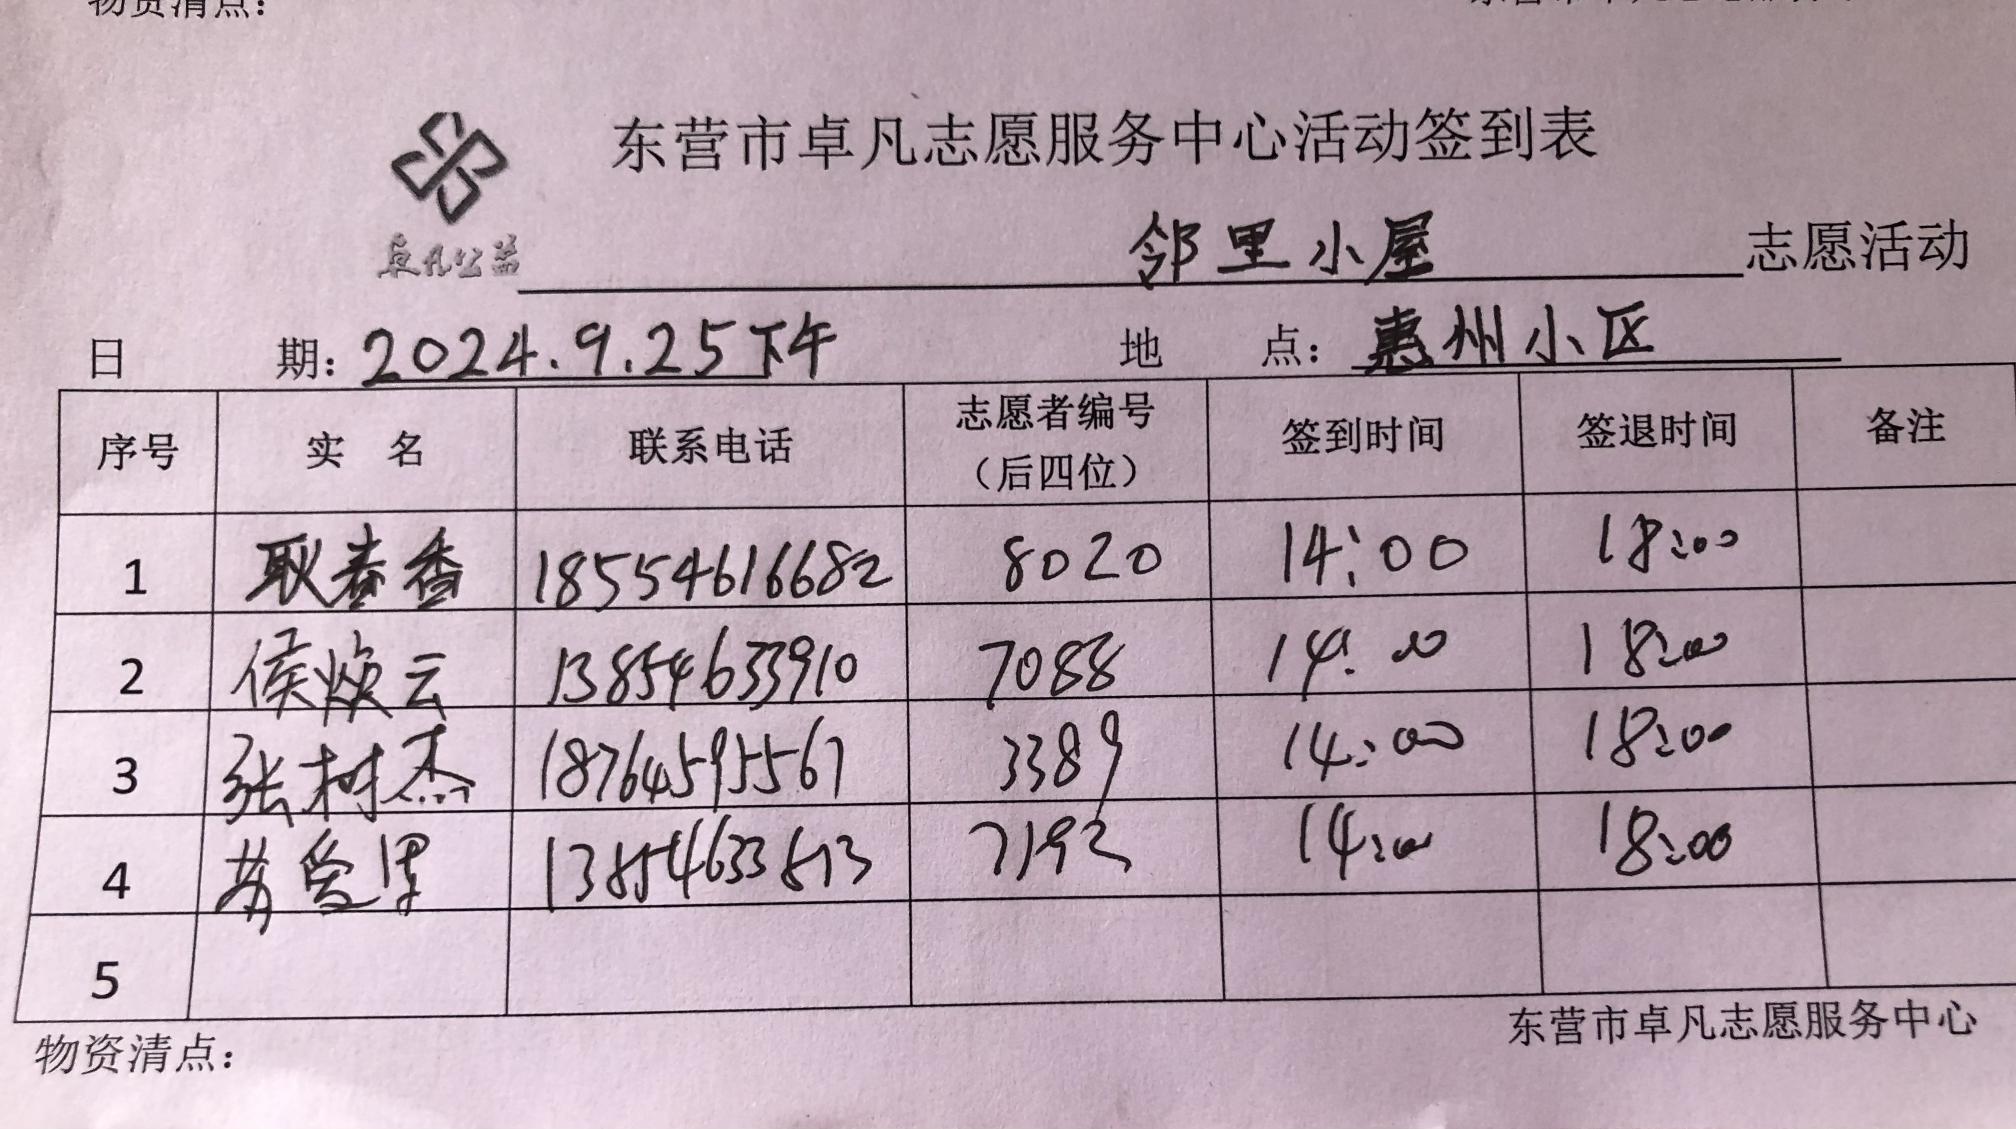 物资清点：
东营市卓凡志愿服务中心活动签到表
卓凡公益
邻里小屋 志愿活动
日 期：2024.9.25下午 地 点：惠州小区
序号 实 名 联系电话 志愿者编号（后四位） 签到时间 签退时间 备注
1 耿春香 18554616682 8020 14:00 18:00
2 侯焕云 13854633910 7088 14:00 18:00
3 张树杰 18764595567 3389 14:00 18:00
4 苏爱军 13854633813 7192 14:00 18:00
5
物资清点： 东营市卓凡志愿服务中心